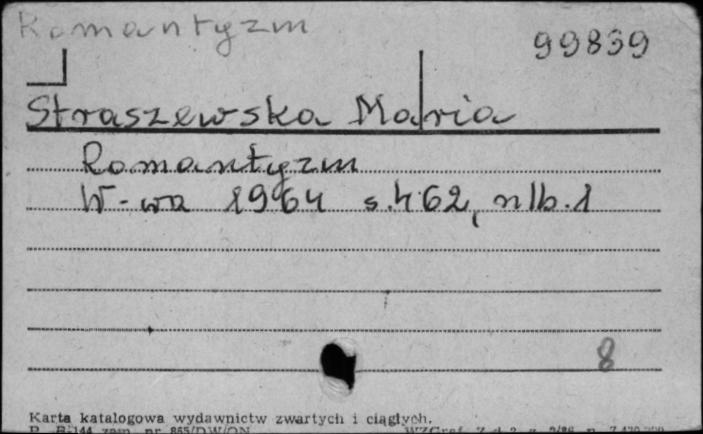 Romantyzm
99839
Straszewska Maria
Romantyzm
W-wa 1964 s.462, nlb.1
8
Karta katalogowa wydawnictw zwartych i ciągłych.